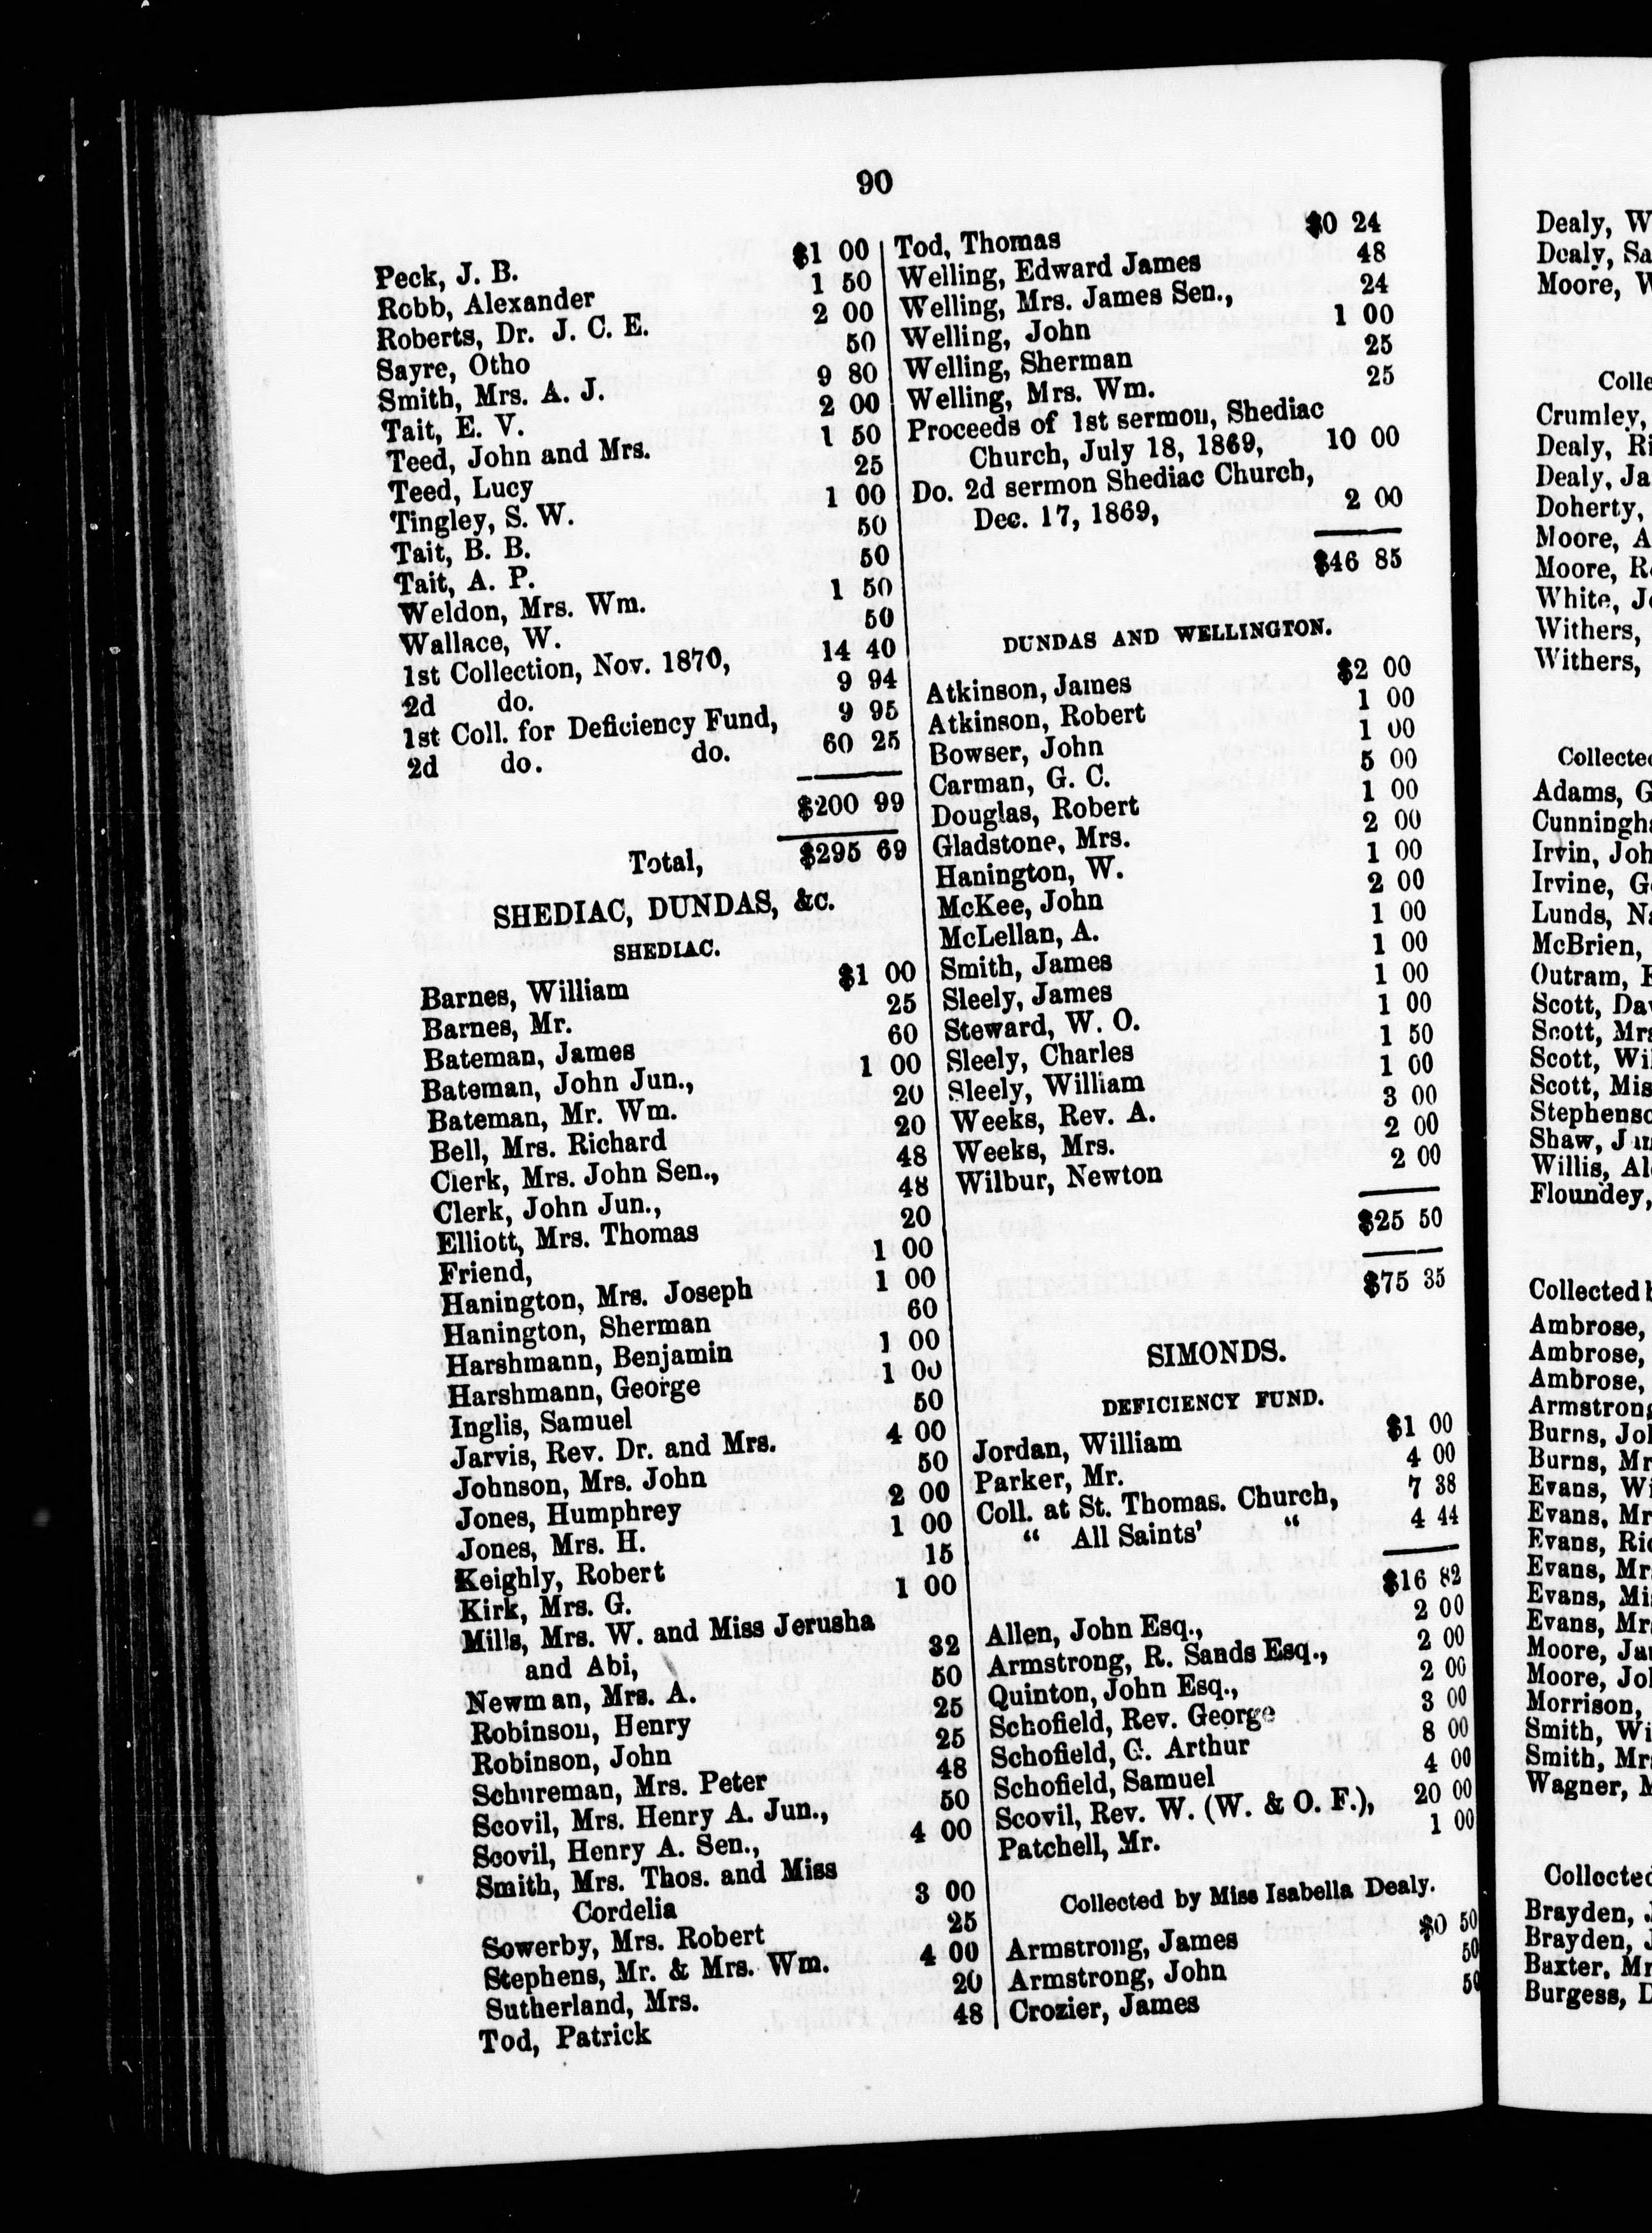 90
Peck, J. B. $1 00
Robb, Alexander 1 50
Roberts, Dr. J. C. E. 2 00
Sayre, Otho 50
Smith, Mrs. A. J. 9 80
Tait, E. V. 2 00
Teed, John and Mrs. 1 50
Teed, Lucy 25
Tingley, S. W. 1 00
Tait, B. B. 50
Tait, A. P. 50
Weldon, Mrs. Wm. 1 50
Wallace, W. 50
1st Collection, Nov. 1870, 14 40
2d do. 9 94
1st Coll. for Deficiency Fund, 9 95
2d do. do. 60 25
$200 99
Total, $295 69
SHEDIAC, DUNDAS, &c.
SHEDIAC.
Barnes, William $1 00
Barnes, Mr. 25
Bateman, James 60
Bateman, John Jun., 1 00
Bateman, Mr. Wm. 20
Bell, Mrs. Richard 20
Clerk, Mrs. John Sen., 48
Clerk, John Jun., 48
Elliott, Mrs. Thomas 20
Friend, 1 00
Hanington, Mrs. Joseph 1 00
Hanington, Sherman 60
Harshmann, Benjamin 1 00
Harshmann, George 1 00
Inglis, Samuel 50
Jarvis, Rev. Dr. and Mrs. 4 00
Johnson, Mrs. John 50
Jones, Humphrey 2 00
Jones, Mrs. H. 1 00
Keighly, Robert 15
Kirk, Mrs. G. 1 00
Mills, Mrs. W. and Miss Jerusha
and Abi, 32
Newman, Mrs. A. 50
Robinson, Henry 25
Robinson, John 25
Schureman, Mrs. Peter 48
Scovil, Mrs. Henry A. Jun., 50
Scovil, Henry A. Sen., 4 00
Smith, Mrs. Thos. and Miss
Cordelia 3 00
Sowerby, Mrs. Robert 25
Stephens, Mr. & Mrs. Wm. 4 00
Sutherland, Mrs. 20
Tod, Patrick 48
Tod, Thomas $0 24
Welling, Edward James 48
Welling, Mrs. James Sen., 24
Welling, John 1 00
Welling, Sherman 25
Welling, Mrs. Wm. 25
Proceeds of 1st sermon, Shediac
Church, July 18, 1869, 10 00
Do. 2d sermon Shediac Church,
Dec. 17, 1869, 2 00
$46 85
DUNDAS AND WELLINGTON.
Atkinson, James $2 00
Atkinson, Robert 1 00
Bowser, John 1 00
Carman, G. C. 5 00
Douglas, Robert 1 00
Gladstone, Mrs. 2 00
Hanington, W. 1 00
McKee, John 2 00
McLellan, A. 1 00
Smith, James 1 00
Sleely, James 1 00
Steward, W. O. 1 00
Sleely, Charles 1 50
Sleely, William 1 00
Weeks, Rev. A. 3 00
Weeks, Mrs. 2 00
Wilbur, Newton 2 00
$25 50
$75 35
SIMONDS.
DEFICIENCY FUND.
Jordan, William $1 00
Parker, Mr. 4 00
Coll. at St. Thomas. Church, 7 38
“ All Saints' “ 4 44
$16 82
Allen, John Esq., 2 00
Armstrong, R. Sands Esq., 2 00
Quinton, John Esq., 2 00
Schofield, Rev. George 3 00
Schofield, G. Arthur 8 00
Schofield, Samuel 4 00
Scovil, Rev. W. (W. & O. F.), 20 00
Patchell, Mr. 1 00
Collected by Miss Isabella Dealy.
Armstrong, James $0 50
Armstrong, John 50
Crozier, James 50
Dealy, W
Dealy, Sa
Moore, W
Colle
Crumley,
Dealy, Ri
Dealy, Ja
Doherty,
Moore, A
Moore, R
White, J
Withers,
Withers,
Collected
Adams, G
Cunningh
Irvin, Joh
Irvine, G
Lunds, N
McBrien,
Outram,
Scott, Da
Scott, Mrs
Scott, Wi
Scott, Mis
Stephenso
Shaw, J
Willis, Al
Floundey,
Collected b
Ambrose,
Ambrose,
Ambrose,
Armstrong
Burns, Jo
Burns, Mr
Evans, Wi
Evans, Mr
Evans, Ric
Evans, Mr
Evans, Mi
Evans, Mr
Moore, Ja
Moore, Jo
Morrison,
Smith, Wi
Smith, Mr
Wagner, M
Collected
Brayden, J
Brayden, J
Baxter, Mr
Burgess, D